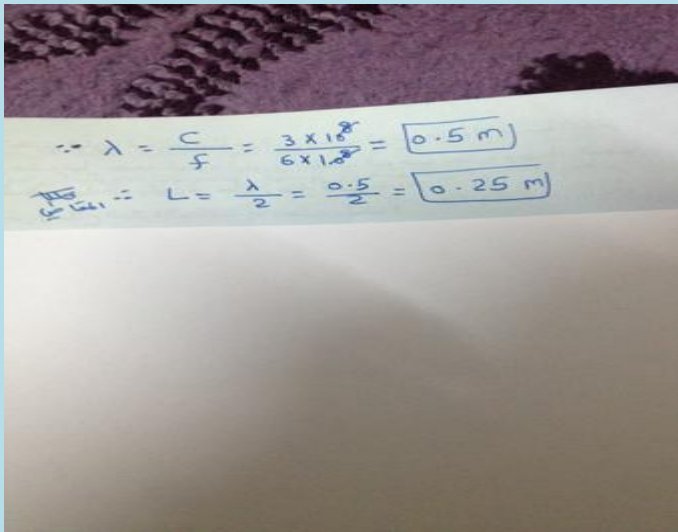 ∵ λ = c/f = 3 × 10⁸ / 6 × 10⁸ = 0.5 m
∴ L = λ/2 = 0.5/2 = 0.25 m